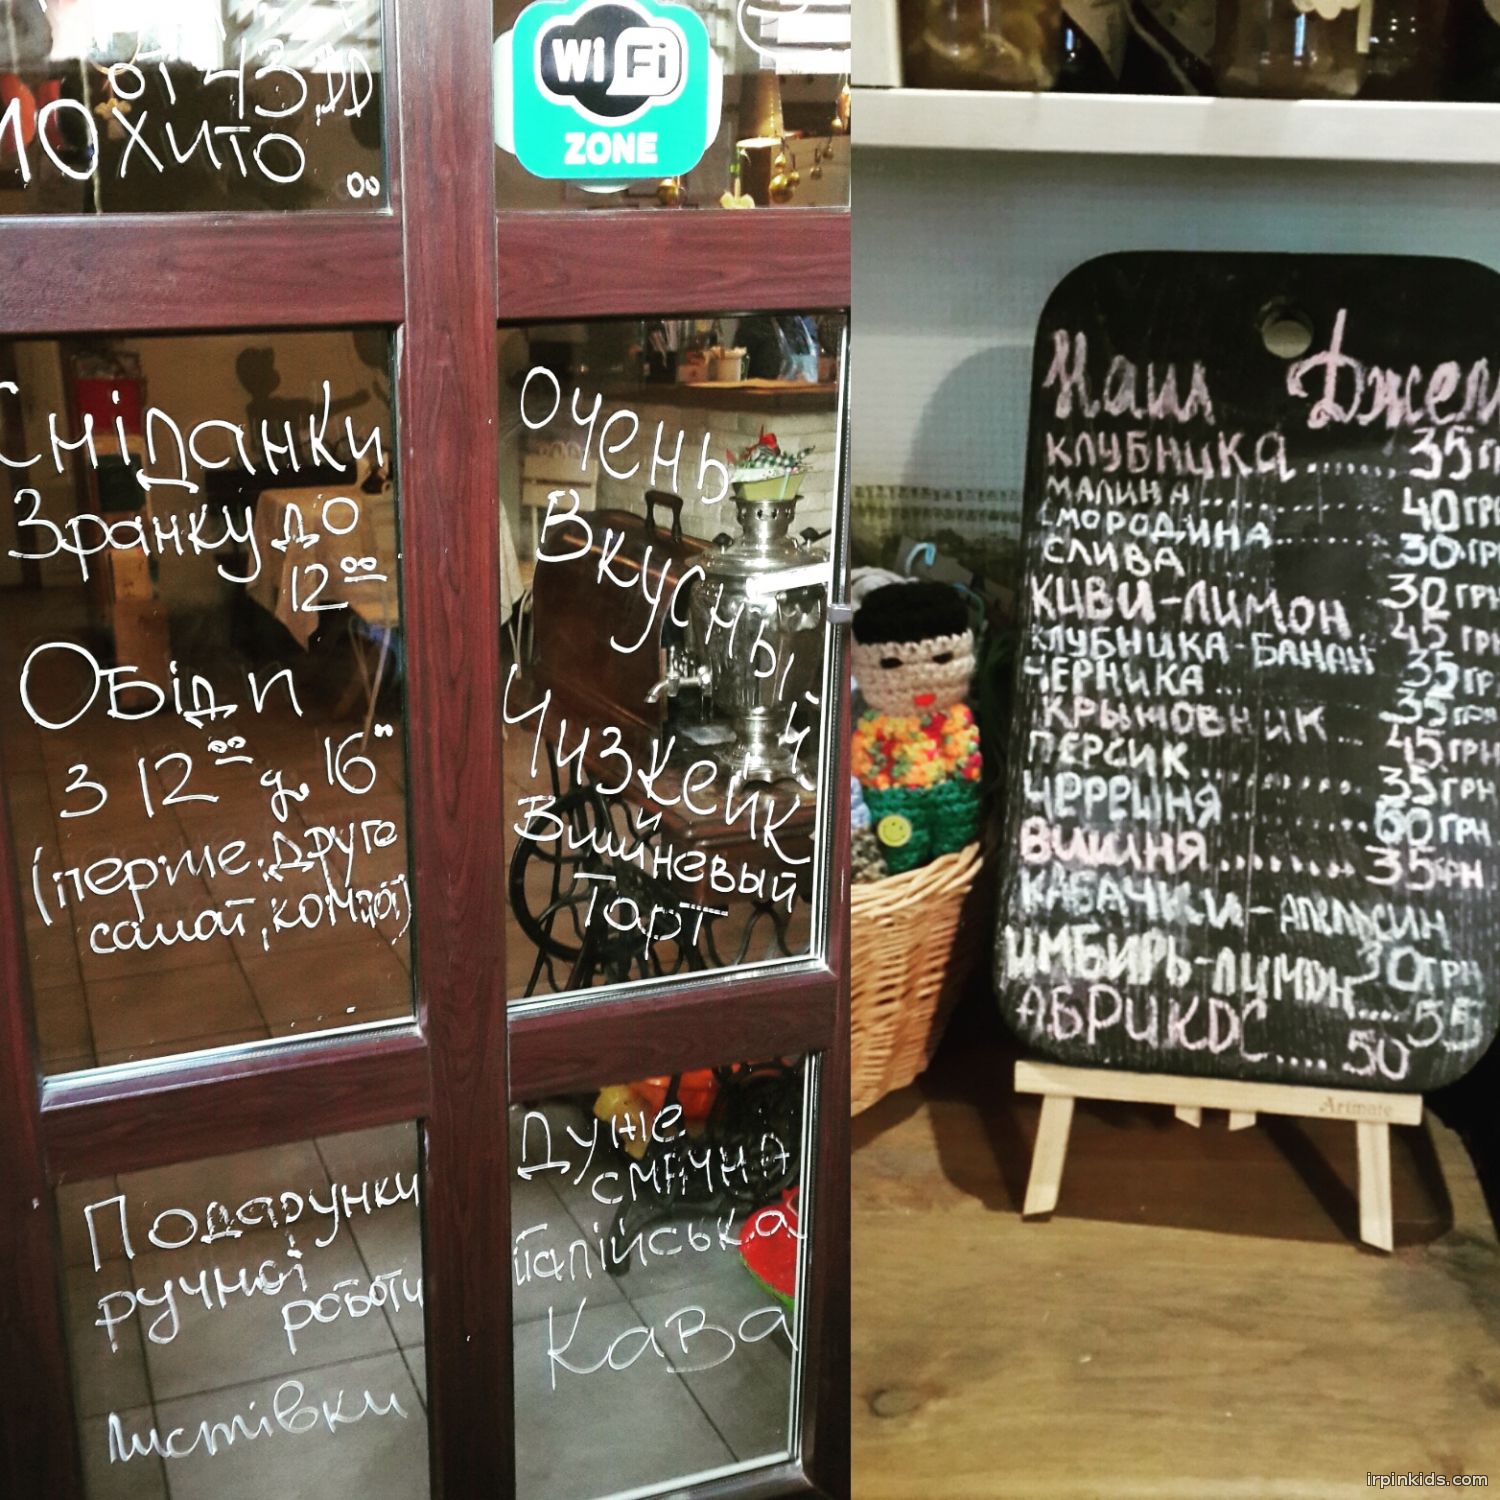 от 43
МОХИТО
00
WiFi
ZONE
Сніданки
Зранку до
12 00
Обіди
з 12 00 до 16
(перше, друге
салат, компот)
Подарунки
ручної
роботи
Листівки
Очень
Вкусный
Чизкейк
Вишневый
Торт
Дуже
смачна
італійська
Кава
Наш Джем
КЛУБНИКА ....... 35 гр
МАЛИНА ............ 40 ГРН
СМОРОДИНА ....... 30 ГР
СЛИВА ....... 30 ГРН
КИВИ-ЛИМОН 45 ГРН
КЛУБНИКА-БАНАН 35 ГР
ЧЕРНИКА .. 35 ГРН
КРЫЖОВНИК ... 45 ГРН
ПЕРСИК ............ 35 ГРН
ЧЕРЕШНЯ ............ 60 ГРН
ВИШНЯ ......... 35 ГРН
КАБАЧКИ-АПЕЛЬСИН
30 ГРН
ИМБИРЬ-ЛИМОН .... 55
АБРИКОС .... 50
Artmate
irpinkids.com